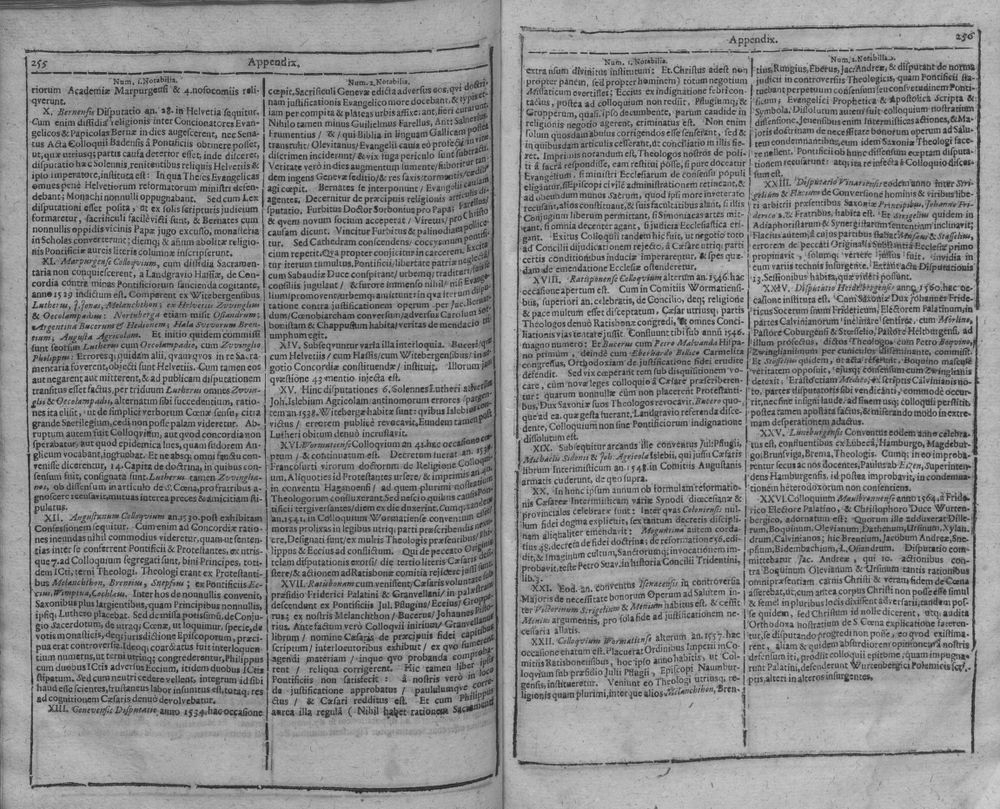 255
Appendix.
Num. 1. Notabilia.
riorum Academiæ Marpurgensi & 4. nosocomiis reli-
querunt.
X. Bernensis Disputatio an. 28. in Helvetia sequitur.
Cum enim dissidia religionis inter Concionatores Evan-
gelicos & Papicolas Bernæ in dies augescerent, nec Sena-
tus Acta Colloquii Badensis à Pontificiis obtinere posset,
ut, quæ utriusq; partis causa deterior esset, inde disceret;
disputatio hæc
ipso imperatore, instituta est: In qua Theses Evangelicas
omnes penè Helvetiorum reformatorum ministri defen-
debant; Monachi nonnulli oppugnabant. Sed cum Lex
disputationi esset posita, ut ex solis scripturis judicium
formaretur, sacrificuli facilè victi sunt, & Bernates cum
nonnullis oppidis vicinis Papæ jugo excusso, monasteria
in Scholas converterunt; diemq; & annum abolitæ religio-
nis Pontificiæ aureis literis columnæ inscripserunt.
XI. Marpurgense Colloquium, cum dissidia Sacramen-
taria non conquiescerent, à Landgravio Hassiæ, de Con-
cordia contra minas Pontificiorum sancienda cogitante,
anno 1529 indictum est. Comparent ex Witebergensibus
Lutherus, J. Jonas, Melanchthon; ex Helveticis Zwinglium
& Oecolampadius: Norinberga etiam missus Osiandrum;
Argentina Bucerum & Hedionem; Hala Suevorum Bren-
tium; Augusta Agricolam. Et initio quidem commissi
sunt seorsim Lutherus cum Oecolampadio, cum Zwinglio
Philippus: Errores q; quidam alii, quam quos in re Sacra-
mentaria foverent, objecti sunt Helvetiis. Cum tamen eos
aut negarent aut mitterent, & ad publicam disputationem
transitus esset factus, per triduum Lutherus omnes Zwin-
glii & Oecolampadii, alternatim sibi succedentium, ratio-
nes ita elisit, ut de simplici verborum Cœnæ sensu, citra
grande Sacrilegium, cedi non posse palam videretur. Ab-
ruptum autem fuit Colloquium, aut quod concordia non
sperabatur, aut quod epidemica lues, quam sudorem An-
glicum vocabant, ingruebat. Et ne absq; omni fructu con-
venisse dicerentur, 14. Capita de doctrina, in quibus con-
sensum fuit, consignata sunt. Lutherus tamen Zwinglia-
nos, ob dissensum in articulo de C. Cœna, pro fratribus a-
gnoscere recusavit, mutuas interea preces & amicitiam sti-
pulatus.
XII. Augustanum Colloquium an. 1530. post exhibitam
Confessionem sequitur. Cum enim ad Concordiæ ratio-
nes ineundas nihil commodius videretur, quam ut senten-
tias inter se conferrent Pontificii & Protestantes, ex utris-
que 7. ad Colloquium segregati sunt, bini Principes, toti-
dem ICti, terni Theologi. Theologi erant ex Protestanti-
bus Melanchthon, Brentius, Snepfius; ex Pontificiis Ec-
cius, Wimpina, Cochlæus. Inter hos de nonnullis convenit,
Saxonibus plus largientibus, quam Principibus nonnullis,
ipsiq; Luthero placebat. Sed de missa potissimum, de Conju-
gio Sacerdotum, de utraq; Cœnæ, ut loquimur, specie, de
votis monasticis, deq; jurisdictione Episcoporum, præci-
pua erat controversia. Ideoq; coarctatus fuit interloquen-
tium numerus, ut terni utrinq; congrederentur, Philippus
cum duobus ICtis adversus Eccium, itidem duobus ICtis
stipatum. Sed cum neutri cedere vellent, integrum id sibi
haud esse scientes, frustaneus labor insumtus est, totaq; res
ad cognitionem Cæsaris denuò devolvebatur.
XIII. Genevensis Disputatio anno 1534. hac occasione
Num. 2. Notabilia.
cœpit. Sacrificuli Genevæ edicta adversus eos, qui doctri-
nam justificationis Evangelico more docebant, & typis
jam per compita & plateas urbis affixæ: aut, fieri curarunt.
Nihilo tamen minus Guilhelmus Farellus, Anth: Salnerius
Frumentius / & / qui Biblia in linguam Gallicam postea
transtulit / Olevitanus / Evangelii causa eo profecti in
discrimen incidebant / & vix fuga periculo sunt subtracti.
Veritate verò in dies augmentum sumente / suboritur tan-
dem ingens Genevæ seditio / & res
agi cœpit. Bernates se interponunt / Evangelii causam
agentes. Decernitur de præcipuis religionis articulis di-
sputatio, Furbitus Doctor Sorbonius pro Papa / Farellus /
& quem novum socium acceperat / Viretus / pro Christo
causam dicunt. Vincitur Furbitus & palinodiam pollice-
tur. Sed Cathedram conscendens /
cionem repetit. Qua propter conjicitur in carcerem. Exci-
tur iterum tumultus, Pontificii / libertate patriæ neglecta
cum Sabaudiæ Duce conspirant / urbemq; traditur / factis
consiliis jugulant / & furore immenso nihil / nisi Evange-
lium promovent
tione instituta contradictionem opponunt per Jac. Bernar-
dum / Cœnobiarcham conversum / adversus Carolum Sor-
bonistam & Chappusium habita / veritas de mendacio tri-
umphum egit.
XIV. Subsequuntur varia illa interloquia. Buceri / qui
cum Helvetiis / cum Hassis / cum Witebergensibus / in ne-
gotio Concordiæ constituendæ / instituit. Illorum jam
quæstione 43 mentio injecta est.
XV. Hinc disputationes 6. Solennes Lutheri adversus
Joh. Islebium Agricolam antinomorum errores spargen-
tem an 1538. Witebergæ habitæ sunt: quibus Islebius con-
victus / errorem publicè revocavit, Eundem tamen post
Lutheri obitum denuò incrustavit.
XVI. Wormatiense / Colloquium an. 41. hac occasione cœ-
ptum / & continuatum est. Decretum fuerat an. 1539.
Francofurti virorum doctorum de Religione Colloqui-
um, Aliquoties id Protestantes ursere, & imprimis an 40.
in conventu Hagenoensi / ad quem plurimi nostrorum
Theologorum confluxerant. Sed nescio quibus causis Pon-
tificii tergiversantes / diem ex die duxerint. Cumq; tandem
an. 1541. in Colloquium Wormatiense consensum esset
moras prolixas in legibus utriq; parti præscribendis nexu-
ere, Designati sunt / ex multis Theologis præsentibus / Phi-
lippus & Eccius ad conflictum. Qui de peccato Origini
telam disputationis exorsi / die tertio literis Cæsaris fini-
stere / & actionem ad Ratisbonæ comitia rejicere jussi sunt.
XVII. Ratisbonam cum venissent / Cæsaris voluntate sub
præsidio Friderici Palatini & Granvellani / in palæstram
descendunt ex Pontificiis Jul. Pflugius / Eccius / Groppe-
rus; ex nostris Melanchthon / Bucerus / Johannes Pisto-
rius. Ante factum verò Colloquii initium / Granvellanus
librum / nomine Cæsaris de præcipuis fidei capitibus
scriptum / interlocutoribus exhibet / ex quo sumant
agendi materiam / inquo quo probanda comproba-
rent / reliqua corrigerent. Hic tamen liber ipsis
Pontificiis non satisfecit: à nostris verò in loco
de justificatione approbatus / paululumque corre-
ctus / & Cæsari redditus est. Et cum Philippus
aurea illa regulâ (Nihil habet rationem Sacramenti
Appendix.
256
Num. 1. Notabilia.
extra usum divinitus institutum: Et, Christus adest non
propter panem, sed propter hominem) totum negotium
Missaticum everrisset; Eccius ex indignatione febri con-
tactus, postea ad colloquium non rediit, Pflugiumq; &
Gropperum, quasi, ipso decumbente, parum caudide in
religionis negotio agerent, criminatus est. Non enim
solum quosdam abusus corrigendos esse sensërant, sed &
in quibusdam articulis cesserant, ut conciliatio mi illis fie-
ret. Imprimis notandum est, Theologos nostros de poli-
tia sacra respondisse, eam restitui posse, si pure doceatur
Evangelium, si ministri Ecclesiarum de consensu populi
eligantur, si Episcopi civilè administrationem retineant, &
ad obeundum munus Sacrum, quod ipsi more inveterato
recusant, alios constituant, & suis facultatibus alant, si illis
Conjugium liberum permittant, si Simoniacas artes mit-
tant, si omnia decenter agant, si judicia Ecclesiastica eri-
gant. Exitus Colloquii tandem hic fuit, ut negotio toto
ad Concilii dijudicationem rejecto, à Cæsare utriq; parti
certis conditionibus induciæ imperarentur, & spes quæ-
dam de emendatione Ecclesiæ ostenderetur.
XVIII. Ratisponense Colloquium alterum an. 1546. hac
occasione apertum est. Cum in Comitiis Wormatiensi-
bus, superiori an. celebratis, de Concilio, deq; religione
& pace multum esset disceptatum, Cæsar utriusq; partis
Theologos denuò Ratisbonæ congredi, & omnes Conci-
liationis vias tentare jussit. Consumtus tibi sub anno 1546.
magno numero: Et Bucerus cum Petro Malvenda Hispa-
no primum, deinde cum Eberhardo Billico Carmelita
congressus, Orthodoxiam de justificatione fidei erudite
defendit. Sed vix ceperant rem sub disquisitionem vo-
care, cùm novæ leges colloquio à Cæsare præscriberen-
tur: quarum nonnullæ cum non placerent Protestanti-
bus, Dux Saxoniæ suos Theologos revocat, Bucero quo-
que ad ea, quæ gesta fuerant, Landgravio referenda disce-
dente, Colloquium non sine Pontificiorum indignatione
dissolutum est.
XIX. Subsequitur arcanus ille conventus Jul: Pflugii,
Michaelis Sidonii & Joh: Agricolæ Islebii, qui jussu Cæsaris
librum Interimisticum an. 1548. in Comitiis Augustanis
armatis cuderunt, de quo supra.
XX. In hunc ipsum annum ob formulam reformatio-
nis Cæsareæ Intermisticam variæ Synodi diœcesanæ &
provinciales celebratæ sunt: Inter quas Coloniensis nul-
lum fidei dogma explicuit, sex tantum decretis discipli-
nam aliqualiter emendavit: Moguntina autem eorda-
tius 48. decretis de fidei doctrina; de reformatione 56. edi-
dit, & Imaginum cultum, Sanctorumq; invocationem im-
probavit, teste Petro Suav. in historia Concilii Tridentini,
lib. 3.
XXI. Eod. an. conventus Isenacensis in controversia
Majoris de necessitate bonorum Operum ad Salutem in-
ter Victorinum Strigelium & Menium habitus est, & certis
Menius argumentis, pro sola fide ad justificationem ne-
cessaria allatis.
XXII. Colloquium Wormatiense alterum an. 1557. hac
occasione enatum est. Placuerat Ordinibus Imperii in Co-
mitiis Ratisbonensibus, hoc ipso anno habitis, ut Col-
loquium sub præsidio Julii Pflugii, Episcopi Naumbur-
gensis, institueretur. Veniunt eò Theologi utriusq; re-
ligionis quam plurimi, inter que alios, Melanchthon, Bren-
Num. 2. Notabilia.
tius, Rungius, Eberus, Jac: Andreæ, & disputant de norma
judicii in controversiis Theologicis, quam Pontificii sta-
tuebant perpetuum consensum seu consvetudinem Ponti-
ficum; Evangelici Prophetica & Apostolica Scripta &
Symbola. Dissolutum autem fuit colloquium nostratium
dissensione, Jenensibus enim Intermisticas actiones, & Ma-
joris doctrinam de necessitate bonorum operum ad Salu-
tem condemnantibus, cum idem Saxoniæ Theologi face-
re nollent. Pontificii ob hunc dissensum cœptam disputa-
tionem recusarunt: atq; ita re infecta à Colloquio disces-
sum est.
XXIII. Disputatio Vinariensis eodem anno inter Stri-
gelium & Flacium de Conversione hominis & viribus libe-
ri arbitrii præsentibus Saxoniæ Principibus, Johanne Fri-
derico 2. & Fratribus, habita est. Et Strigelius quidem in
Adiaphoristarum & Synergistarum mentem inclinavit;
Flacius autem, à cujus partibus stabant Musæus & Stosselius,
errorem de peccati Originalis Substantia Ecclesiæ primò
propinavit, solumq; vertere jussus fuit, invidia in
cum variis technis insurgente. Extant Acta Disputationis
13. Sessionibus habitæ, quæ videri possunt.
XXIV. Disputatio Heidelbergensis anno 1560. hac oc-
casione instituta est. Cum Saxoniæ Dux Johannes Fride-
ricus Socerum suum Fridericum, Electorem Palatinum, in
partes Calvinianorum inclinare sentiret, cum Mörlino,
Pastore Coburgensi & Stosselio, Pastore Helburgensi, ad
illum profectus, dictos Theologos cum Petro Boquino,
Zwinglianismum per cuniculos disseminante, commisit.
Et Stosselius quidem, ut acta testantur, Boquino mascule
veritatem opposuit, ejusq; consensum cum Zwinglianis
detexit. Erasto etiam Medico, ex scriptis Calvinianis no-
tis, partes disputatoris sibi vendicanti, commode occur-
rit; nec sine insigni laude, ad finem usq; colloquii perstitit,
postea tamen apostata factus, & miserando modo in extre-
mam desperationem adactus.
XXV. Luneburgensis Conventus eodem anno celebra-
tus est, confluentibus ex Lubeca, Hamburgo, Magdebur-
go, Brunsviga, Brema, Theologis. Cumq; in eo improba-
rentur secus ac nos docentes, Paulus ab Eizen, Superinten-
dens Hamburgensis, id postea pro ingenio improbavit, in condemna-
tionem heterodoxorum non consentiens.
XXVI. Colloquium Maulbrunnense anno 1564. à Fride-
rico Electore Palatino, & Christophoro Duce Wurten-
bergico, adornatum est: Quorum ille adduxerat Dille-
rum, Boquinum, Olevianum, Dathenum, Ursinum, Xylan-
drum, Calvinianos; hic Brentium, Jacobum Andreæ, Sne-
pfium, Bidembachium, L. Osiandrum. Disputatio com-
mittebatur Jac. Andreæ, qui 10. actionibus con-
tra Boquinum Olevianum & Ursinum variis rationibus
omnipræsentiam carnis Christi & veram ejusdem in Cœna
asserebat, ut, cum antea corpus Christi non posse esse simul
& semel in pluribus locis dixissent adversarii, tandem pos-
se quidem, sed Christum id nolle dicerent, utq; audita
Orthodoxa nostratium de S. Cœna explicatione faceren-
tur, se disputando progredi non posse, eo quod existima-
rent, aliam & quidem absurdiorem opinionem à nostris
defensum iri, prodiit colloquii epitome, quam impugna-
runt Palatini, defenderunt Wurtenbergici Polemicis scri-
ptis, alteri in alteros insurgentes.